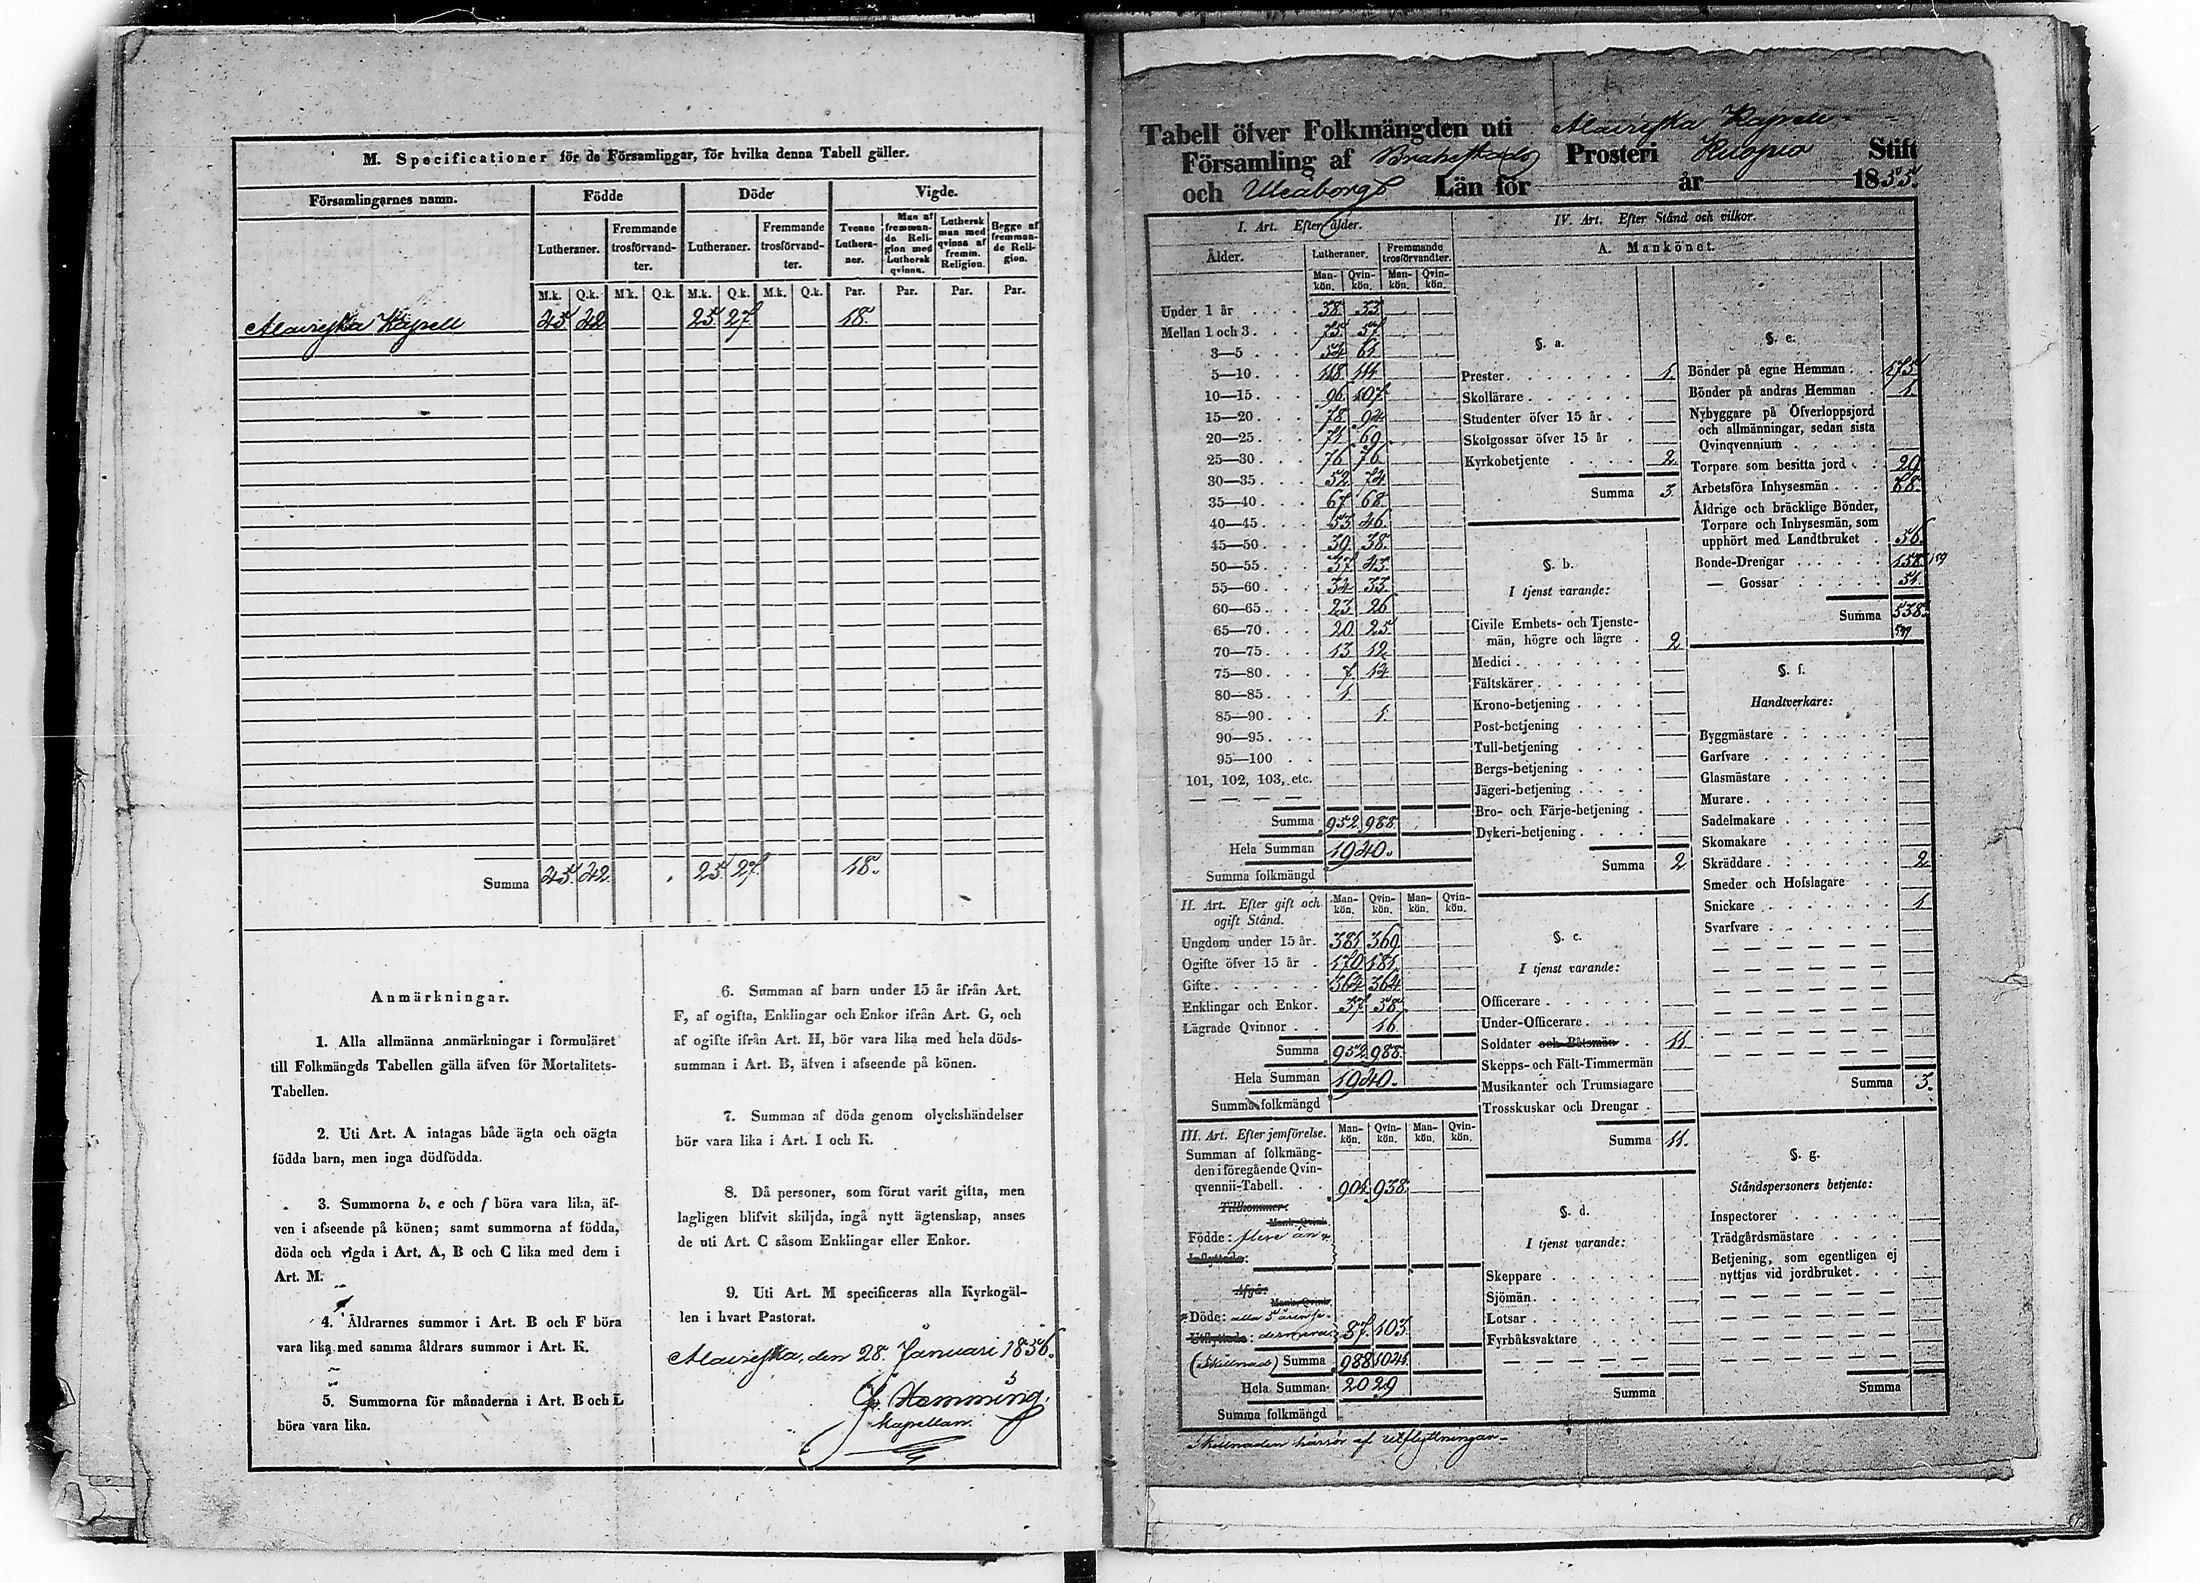 M. Specificationer för de Församlingar, för hvilka denna Tabell gäller.
Församlingarnes namn. Födde Döde Vigde.
Lutheraner. Fremmande trosförvandter. Lutheraner. Fremmande trosförvandter. Tvenne Lutheraner. Man af fremmande Religion med Luthersk qvinna. Luthersk man med qvinna af fremm. Religion. Begge af fremmande Religion.
M.k. Q.k. M.k. Q.k. M.k. Q.k. M.k. Q.k. Par. Par. Par. Par.
Kapell 45 42 25. 27. 18.
Summa 45. 42. 25. 27. 18.
Anmärkningar.
1. Alla allmänna anmärkningar i formuläret
till Folkmängds Tabellen gälla äfven för Mortalitets-
Tabellen.
2. Uti Art. A intagas både ägta och oägta
födda barn, men inga dödfödda.
3. Summorna b, e och f böra vara lika, äf-
ven i afseende på könen; samt summorna af födda,
döda och vigda i Art. A, B och C lika med dem i
Art. M.
4. Åldrarnes summor i Art. B och F böra
vara lika med samma åldrars summor i Art. K.
5. Summorna för månaderna i Art. B och L
böra vara lika.
6. Summan af barn under 15 år ifrån Art.
F, af ogifta, Enklingar och Enkor ifrån Art. G, och
af ogifte ifrån Art. H, bör vara lika med hela döds-
summan i Art. B, äfven i afseende på könen.
7. Summan af döda genom olyckshändelser
bör vara lika i Art. I och K.
8. Då personer, som förut varit gifta, men
lagligen blifvit skiljda, ingå nytt ägtenskap, anses
de uti Art. C såsom Enklingar eller Enkor.
9. Uti Art. M specificeras alla Kyrkogäl-
len i hvart Pastorat.
den 28. Januari 1856.
Hemming.
Kapellan.
Tabell öfver Folkmängden uti Kapell
Församling af Brahestads Prosteri Kuopio Stift
och Uleåborgs Län för år 1855.
I. Art. Efter ålder.
Ålder. Lutheraner. Fremmande trosförvandter.
Mankön. Qvinkön. Mankön. Qvinkön.
Under 1 år 38 33
Mellan 1 och 3 75. 57
3—5 54 61
5—10 118 111
10—15 96 107
15—20 78 94
20—25 71 69
25—30 76 76
30—35 52 74
35—40 67 68
40—45 53 46
45—50 39 38
50—55 37 43
55—60 34 33
60—65 23 26
65—70 20 25
70—75 13 12
75—80 7 14
80—85 1
85—90 1
90—95
95—100
101, 102, 103, etc.
Summa 952 988
Hela Summan 1940.
Summa folkmängd
II. Art. Efter gift och ogift Stånd. Mankön. Qvinkön. Mankön. Qvinkön.
Ungdom under 15 år. 381 369
Ogifte öfver 15 år 170 181
Gifte 364 364
Enklingar och Enkor. 37 58
Lägrade Qvinnor 16
Summa 952 988
Hela Summan 1940.
Summa folkmängd
III. Art. Efter jemförelse. Mankön. Qvinkön. Mankön. Qvinkön.
Summan af folkmäng-
den i föregående Qvin-
qvennii-Tabell. 901 938
Tillkommer:
Mank. Qvink.
Födde: flere än
Inflyttade:
Afgår:
Mank. Qvink.
Döde: alla 5 åren
Utflyttade: 87. 103
(Skillnad) Summa 988 1041
Hela Summan 2029
Summa folkmängd
Skillnaden härrör af utflyttningar
IV. Art. Efter Stånd och vilkor.
A. Mankönet.
§. a.
Prester 1.
Skollärare
Studenter öfver 15 år
Skolgossar öfver 15 år
Kyrkobetjente 2
Summa 3.
§. b.
I tjenst varande:
Civile Embets- och Tjenste-
män, högre och lägre 2
Medici
Fältskärer
Krono-betjening
Post-betjening
Tull-betjening
Bergs-betjening
Jägeri-betjening
Bro- och Färje-betjening
Dykeri-betjening
Summa 2
§. c.
I tjenst varande:
Officerare
Under-Officerare
Soldater och Båtsmän 11.
Skepps- och Fält-Timmermän
Musikanter och Trumslagare
Trosskuskar och Drengar
Summa 11.
§. d.
I tjenst varande:
Skeppare
Sjömän
Lotsar
Fyrbåksvaktare
Summa
§. e.
Bönder på egne Hemman 175
Bönder på andras Hemman 1.
Nybyggare på Öfverloppsjord
och allmänningar, sedan sista
Qvinqvennium
Torpare som besitta jord 29
Arbetsföra Inhysesmän 68.
Åldrige och bräcklige Bönder,
Torpare och Inhysesmän, som
upphört med Landtbruket 56.
Bonde-Drengar 158. 159
— Gossar 51.
Summa 538.
539
§. f.
Handtverkare:
Byggmästare
Garfvare
Glasmästare
Murare
Sadelmakare
Skomakare
Skräddare 2
Smeder och Hofslagare
Snickare 1
Svarfvare
Summa 3.
§. g.
Ståndspersoners betjente:
Inspectorer
Trädgårdsmästare
Betjening, som egentligen ej
nyttjas vid jordbruket
Summa